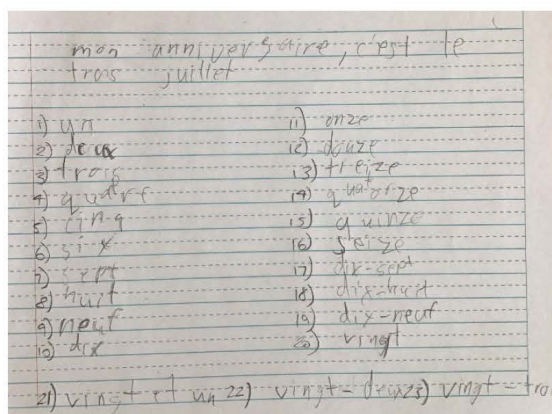 mon anniversaire, c'est le
trois juillet
1) un
2) deux
3) trois
4) quatre
5) cinq
6) six
7) sept
8) huit
9) neuf
10) dix
11) onze
12) douze
13) treize
14) quatorze
15) quinze
16) seize
17) dix-sept
18) dix-huit
19) dix-neuf
20) vingt
21) vingt et un 22) vingt-deux 23) vingt-troi